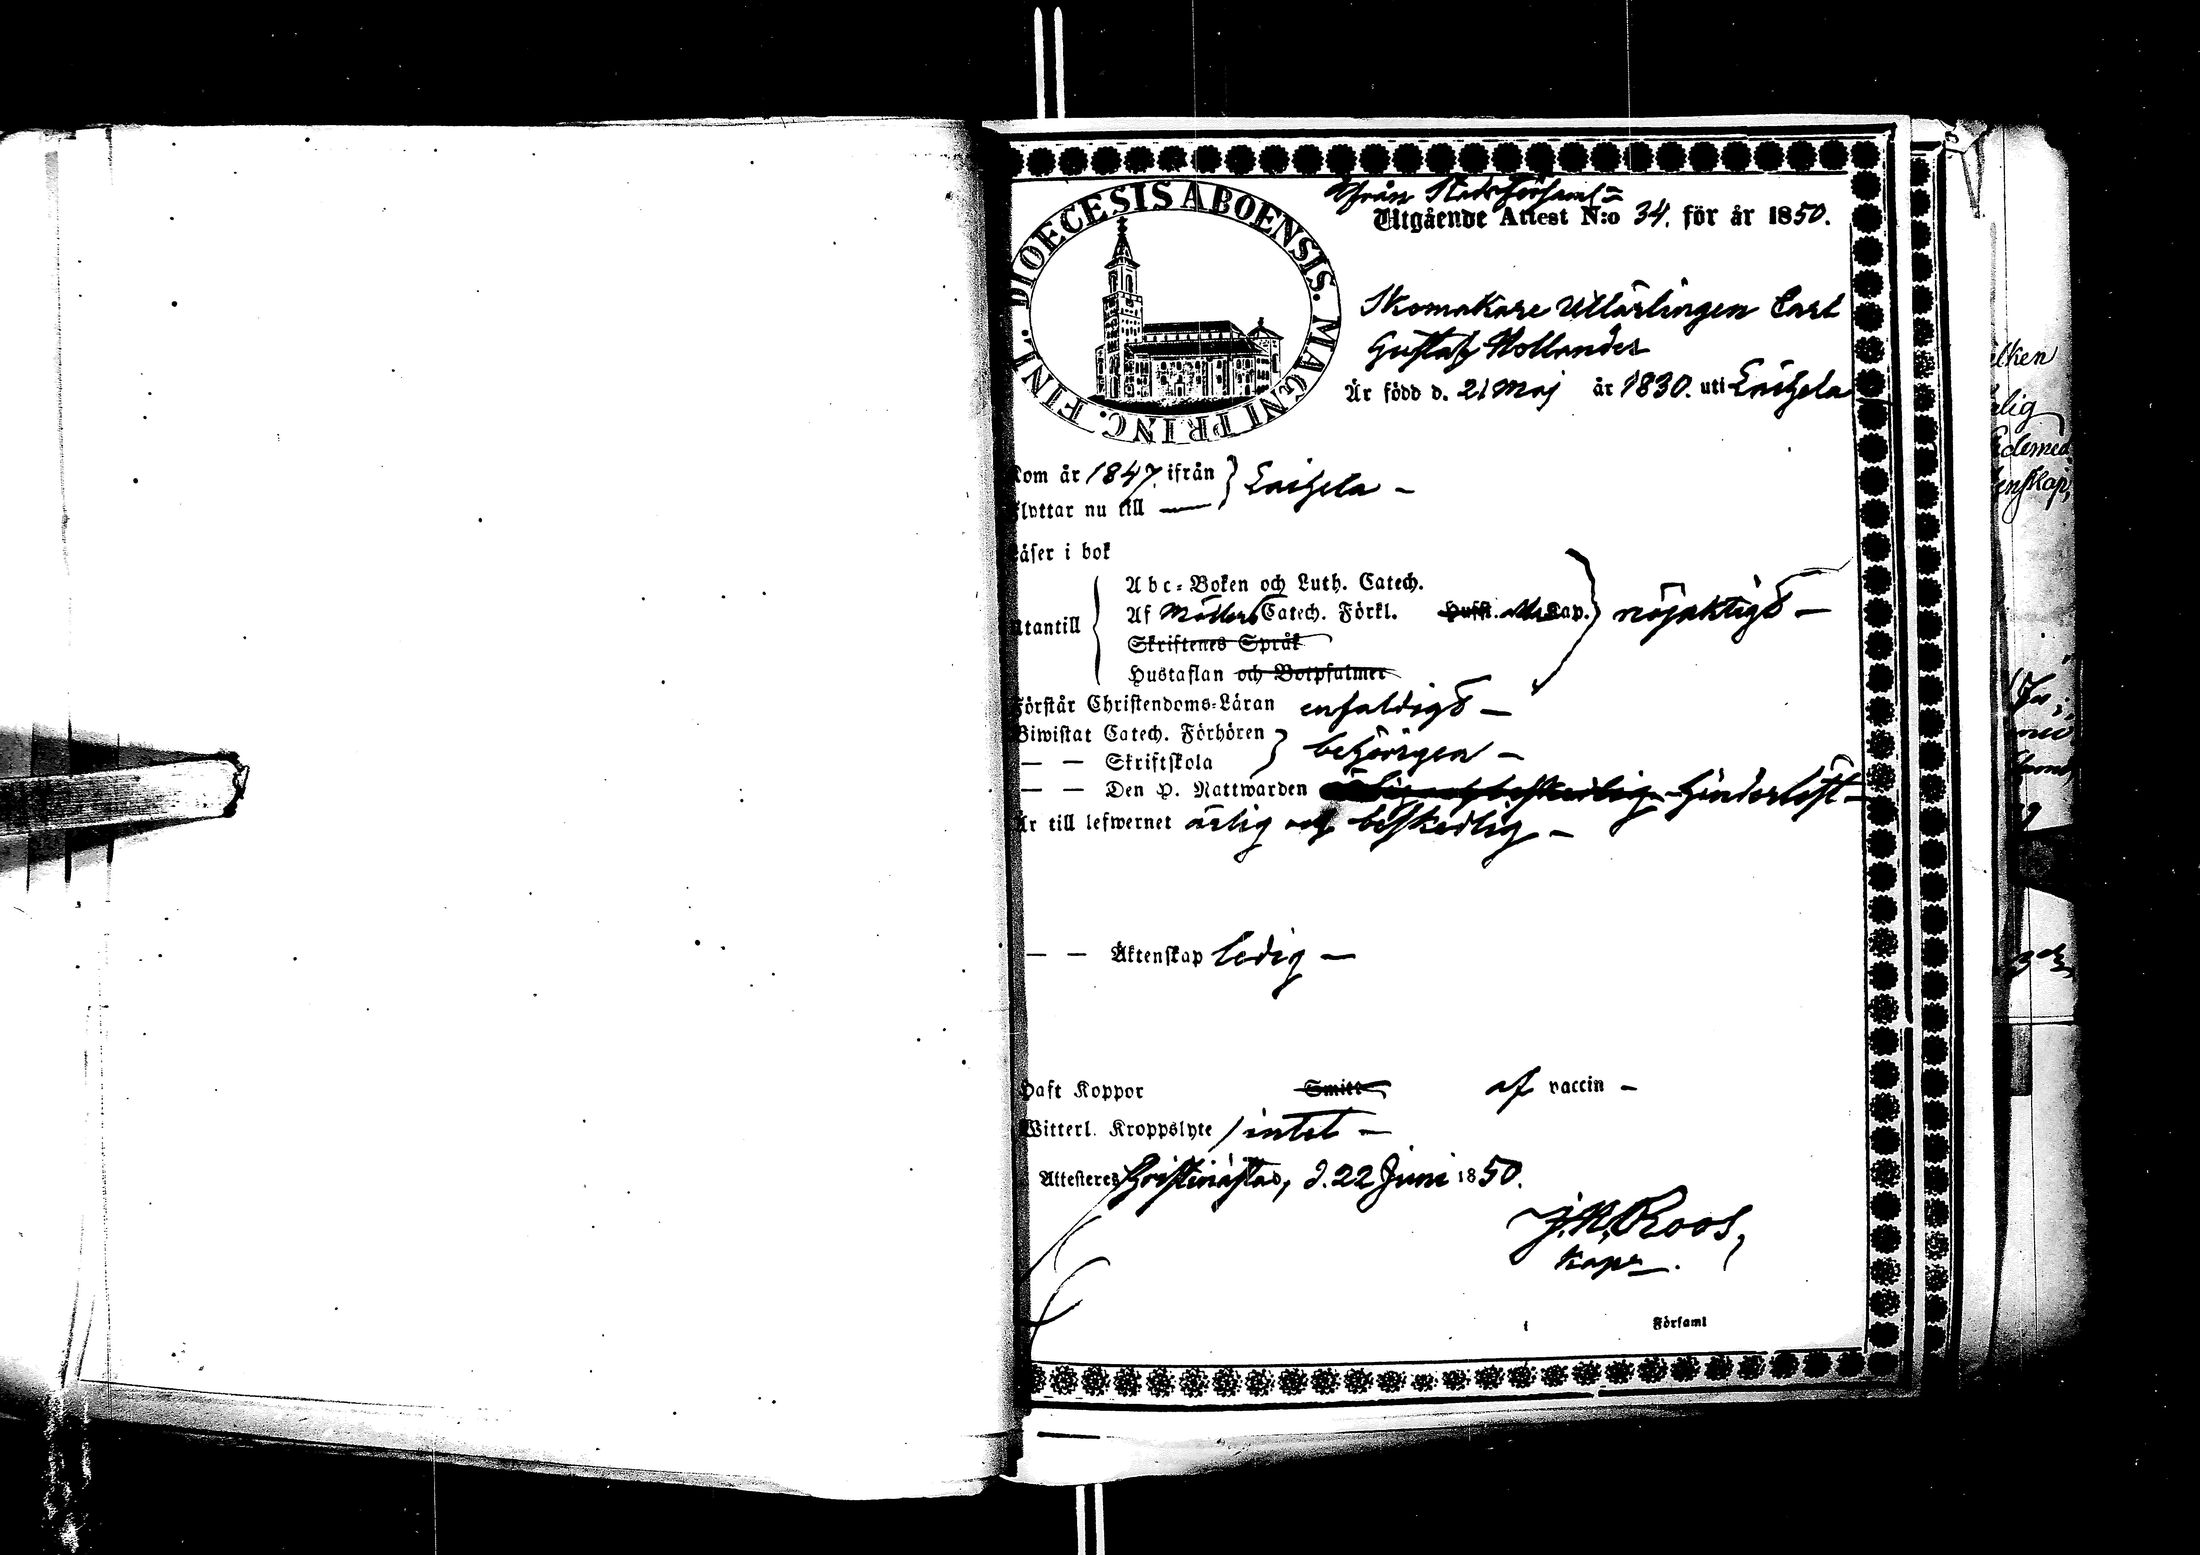 DIOECESIS ABOENSIS. MAGNI PRINC. FINL.
Ifrån Stadsförsaml=
Utgående Attest N:o 34. för år 1850.
Skomakare Utlärlingen Carl
Gustaf Hollander
Är född d. 21 Maj år 1830. uti Laihela
Kom år 1847. ifrån } Laihela –
Flyttar nu till —
Läser i bok
Utantill
Abc-Boken och Luth. Catech.
Af Möllers Catech. Förkl. Husft. Cap. } nöjaktigt –
Skriftenes Språk
Hustaflan och Botpsalmer
Förstår Christendoms-Läran enfaldigt –
Biwistat Catech. Förhören } behörigen –
— — Skriftskola
— — Den H. Nattwarden ärlig och beskedlig hinderlöst –
Är till lefwernet ärlig och beskedlig –
— — Äktenskap ledig –
Haft Koppor Smitt af vaccin –
Witterl. Kroppslyte / intet –
Attesteres Christinæstad, d. 22 Juni 1850.
J.N. Roos,
Kapn.
i Församl
lken
lig
demed
enskap,